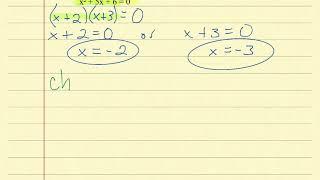 x² + 5x + 6 = 0
(x+2)(x+3) = 0
x + 2 = 0 or x + 3 = 0
x = -2 x = -3
ch